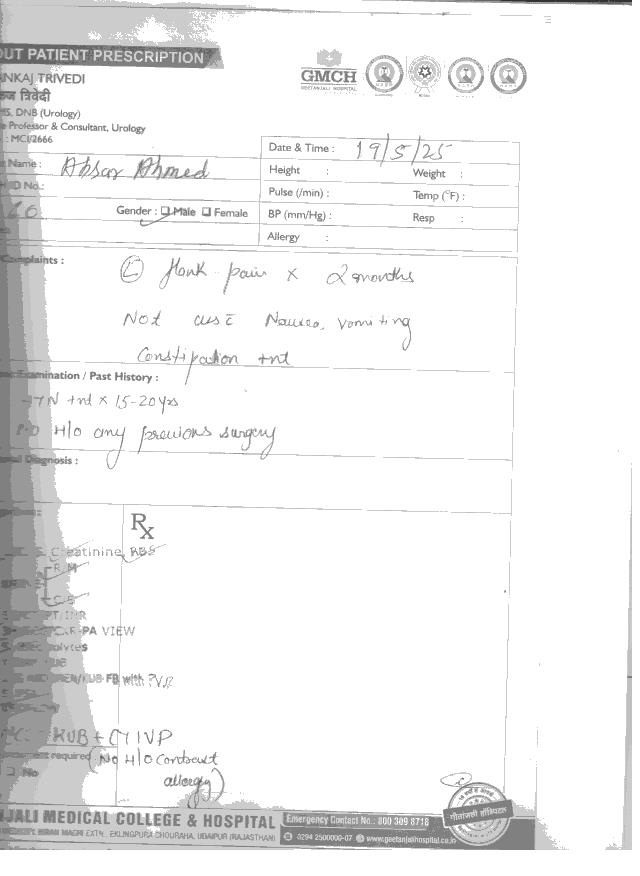 OUT PATIENT PRESCRIPTION
GMCH
GEETANJALI HOSPITAL
ANKAJ TRIVEDI
कज त्रिवेदी
MS, DNB (Urology)
e Professor & Consultant, Urology
: MCI/2666
Name : Absar Ahmed
ID No.:
Gender : Male Female
Date & Time : 19/5/25
Height : Weight :
Pulse (/min) : Temp (°F) :
BP (mm/Hg) : Resp :
Allergy :
Complaints : Ⓛ flank pain x 2 months
Not ass c̄ Nausea, vomiting
Constipation +nt
Examination / Past History :
HTN +nt x 15-20 yrs
H/o any previous surgery
Diagnosis :
Rx
Creatinine, RBS
R/M
C/S
PT/INR
PA VIEW
KUB FB with PVR
KUB + CT IVP
required (No H/o Contrast
No allergy)
NJALI MEDICAL COLLEGE & HOSPITAL
HIRAN MAGRI EXTN., EKLINGPURA CHOURAHA, UDAIPUR (RAJASTHAN)
Emergency Contact No.: 800 309 8718
0294 2500000-07 www.geetanjalihospital.co.in
गीतांजली हॉस्पिटल